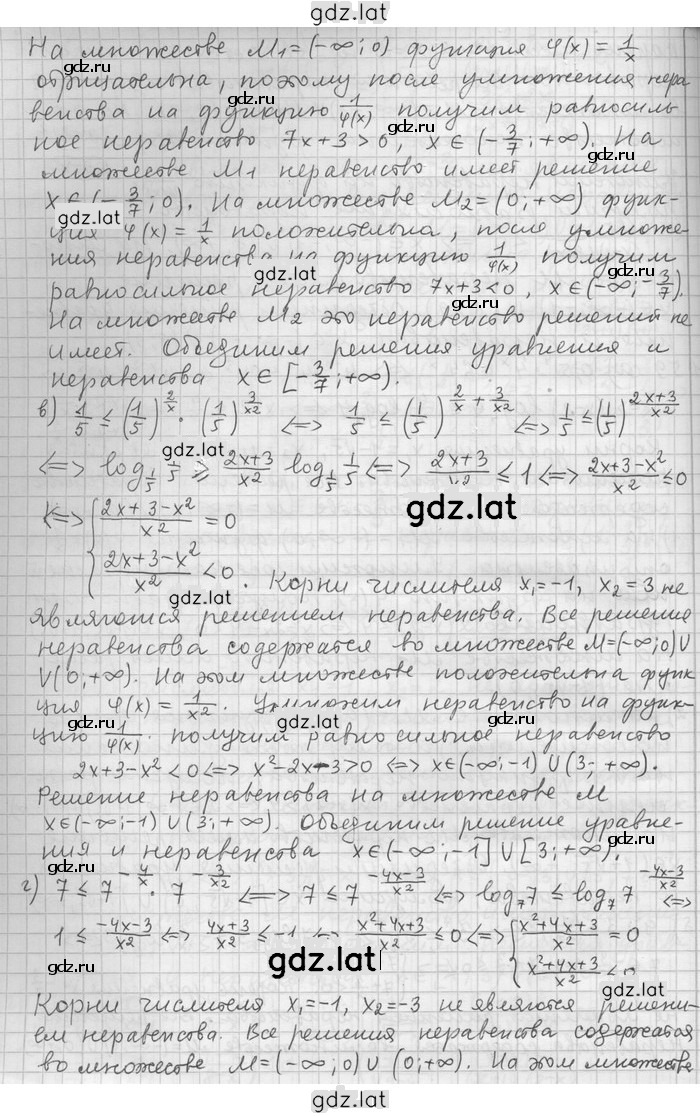 gdz.lat
На множестве M₁=(-∞;0) функция φ(x) = 1/x
отрицательна, поэтому после умножения нера
венства на функцию 1/φ(x) получим равносиль-
ное неравенство 7x+3>0, x∈(-3/7;+∞). На
множестве M₁ неравенство имеет решение
x∈(-3/7;0). На множестве M₂=(0;+∞) функ-
ция φ(x) = 1/x положительна, после умноже-
ния неравенства на функцию 1/φ(x) получим
равносильное неравенство 7x+3<0, x∈(-∞;-3/7).
На множестве M₂ это неравенство решений не
имеет. Объединим решения уравнения и
неравенства x∈[-3/7;+∞).
в) 1/5 ≤ (1/5)^(2/x) · (1/5)^(3/x²) <=> 1/5 ≤ (1/5)^(2/x + 3/x²) <=> 1/5 ≤ (1/5)^((2x+3)/x²)
<=> log_(1/5) 1/5 ≥ (2x+3)/x² log_(1/5) 1/5 <=> (2x+3)/x² ≤ 1 <=> (2x+3-x²)/x² ≤ 0
<=> { (2x+3-x²)/x² = 0
(2x+3-x²)/x² < 0 . Корни числителя x₁=-1, x₂=3 не
являются решением неравенства. Все решения
неравенства содержатся во множестве M=(-∞;0)U
U(0;+∞). На этом множестве положительна функ
ция φ(x) = 1/x². Умножим неравенство на функ-
цию 1/φ(x). получим равносильное неравенство
2x+3-x²<0 <=> x²-2x-3>0 <=> x∈(-∞;-1) U (3; +∞).
Решение неравенства на множестве M
x∈(-∞;-1) U (3;+∞). Объединим решение уравне-
ния и неравенства x∈(-∞;-1] U [3;+∞).
г) 7 ≤ 7^(-4/x) · 7^(-3/x²) <=> 7 ≤ 7^((-4x-3)/x²) <=> log₇7 ≤ log₇ 7^((-4x-3)/x²) <=>
1 ≤ (-4x-3)/x² <=> (4x+3)/x² ≤ -1 <=> (x²+4x+3)/x² ≤ 0 <=> { (x²+4x+3)/x² = 0
(x²+4x+3)/x² < 0
Корни числителя x₁=-1, x₂=-3 не являются решени-
ем неравенства. Все решения неравенства содержатся
во множестве M=(-∞;0) U (0;+∞). На этом множестве
gdz.lat